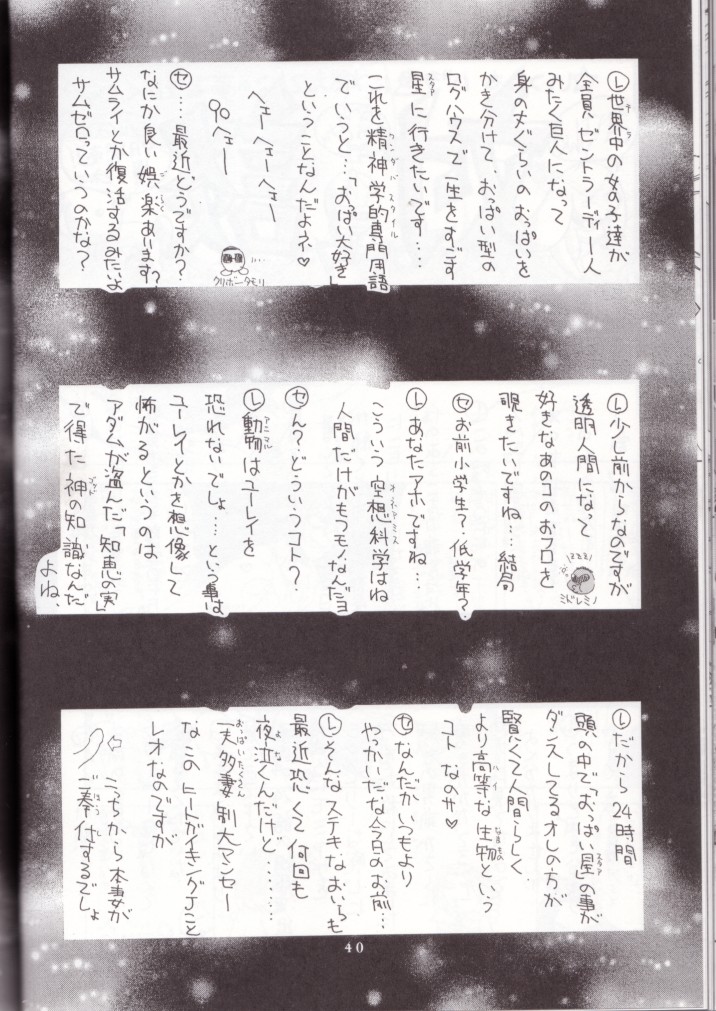 Ⓛ世界中の女の子達が
テラ
全員ゼントラーディー人
みたく巨人になって
身の丈ぐらいのおっぱいを
かき分けて、おっぱい型の
ログハウスで一生をすごす
星に行きたいです‥‥
スタア
これを精神学的専門用語
ワンダバスタイル
でいうと…「おっぱい大好き」
ということなんだよネ♡
ヘェーヘェーヘェー
90ヘェー
クリボータモリ
㋝‥‥最近どうですか?
なにか良い娯楽あります?
ごらく
サムライとか復活するみたいよ
サムゼロっていうのかな?
Ⓛ少し前からなのですが
透明人間になって
好きなあのコのおフロを
覗きたいですね…結局
ミドレミノ
㋝お前小学生?低学年?
Ⓛあなたアホですね…
こういう空想科学はね
オネアミス
人間だけがもつモノなんだヨ
㋝ん?どういうコト?
Ⓛ動物はユーレイを
アニマル
恐れないでしょ…という事は
ユーレイとかを想像して
怖がるというのは
アダムが盗んだ「知恵の実」
で得た神の知識なんだ
ゴッド
よね、
Ⓛだから24時間
頭の中で「おっぱい星」の事が
スタア
ダンスしてるオレの方が
賢くて人間らしく
より高等な生物という
ハイ
なまもの
コトなのサ♡
㋝なんだかいつもより
やっかいだな今日のお前…
Ⓛそんなステキなおいらも
最近恐くて何回も
夜泣くんだけど………
よな
一夫多妻制大マンセー
おっぱいたくさん
なこのヒートガイキングJこと
レオなのですが
⇦こっちから本妻が
ご奉仕するでしょ
ほうし
40